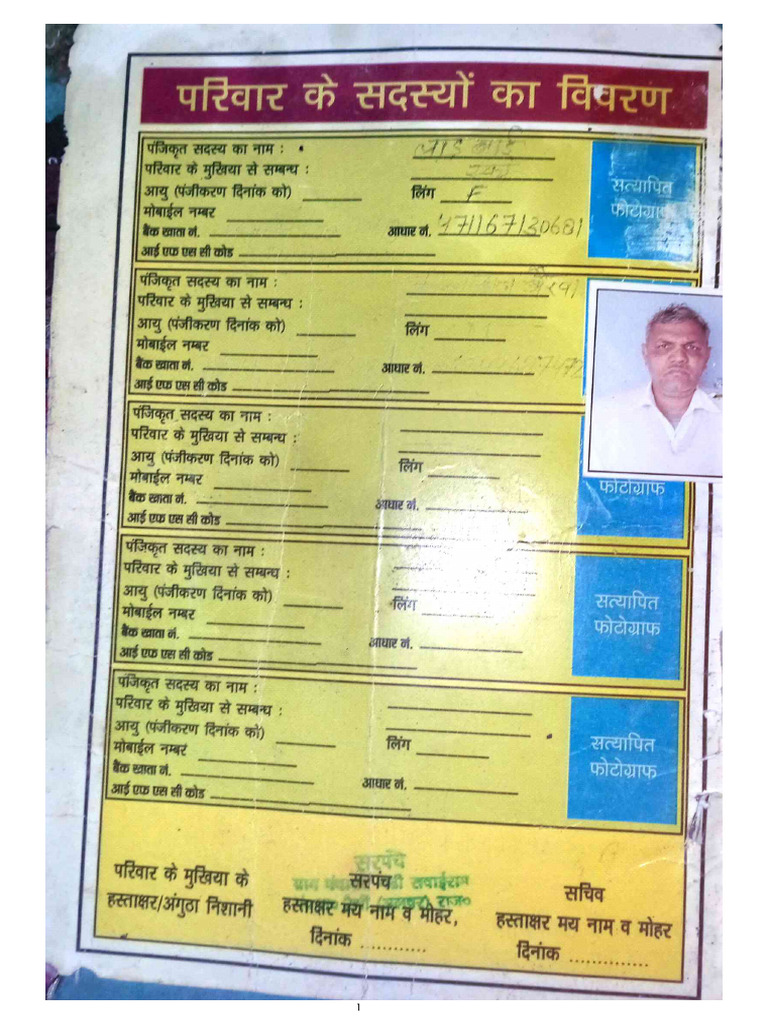 परिवार के सदस्यों का विवरण
पंजिकृत सदस्य का नाम : लाड बाई
परिवार के मुखिया से सम्बन्ध :
आयु (पंजीकरण दिनांक को) ________ लिंग F
मोबाईल नम्बर ________
बैंक खाता नं. ________ आधार नं. 471167130681
आई एफ एस सी कोड ________
सत्यापित
फोटोग्राफ
पंजिकृत सदस्य का नाम :
परिवार के मुखिया से सम्बन्ध :
आयु (पंजीकरण दिनांक को) ________ लिंग ________
मोबाईल नम्बर ________
बैंक खाता नं. ________ आधार नं.
आई एफ एस सी कोड ________
पंजिकृत सदस्य का नाम : ________
परिवार के मुखिया से सम्बन्ध : ________
आयु (पंजीकरण दिनांक को) ________ लिंग ________
मोबाईल नम्बर ________
बैंक खाता नं. ________ आधार नं. ________
आई एफ एस सी कोड ________
फोटोग्राफ
पंजिकृत सदस्य का नाम : ________
परिवार के मुखिया से सम्बन्ध : ________
आयु (पंजीकरण दिनांक को) ________ लिंग ________
मोबाईल नम्बर ________
बैंक खाता नं. ________ आधार नं. ________
आई एफ एस सी कोड ________
सत्यापित
फोटोग्राफ
पंजिकृत सदस्य का नाम : ________
परिवार के मुखिया से सम्बन्ध : ________
आयु (पंजीकरण दिनांक को) ________ लिंग ________
मोबाईल नम्बर ________
बैंक खाता नं. ________ आधार नं. ________
आई एफ एस सी कोड ________
सत्यापित
फोटोग्राफ
परिवार के मुखिया के
हस्ताक्षर/अंगुठा निशानी
सरपंच
ग्राम सवाईराम
राज०
सरपंच
हस्ताक्षर मय नाम व मोहर,
दिनांक ............
सचिव
हस्ताक्षर मय नाम व मोहर
दिनांक ..............
1